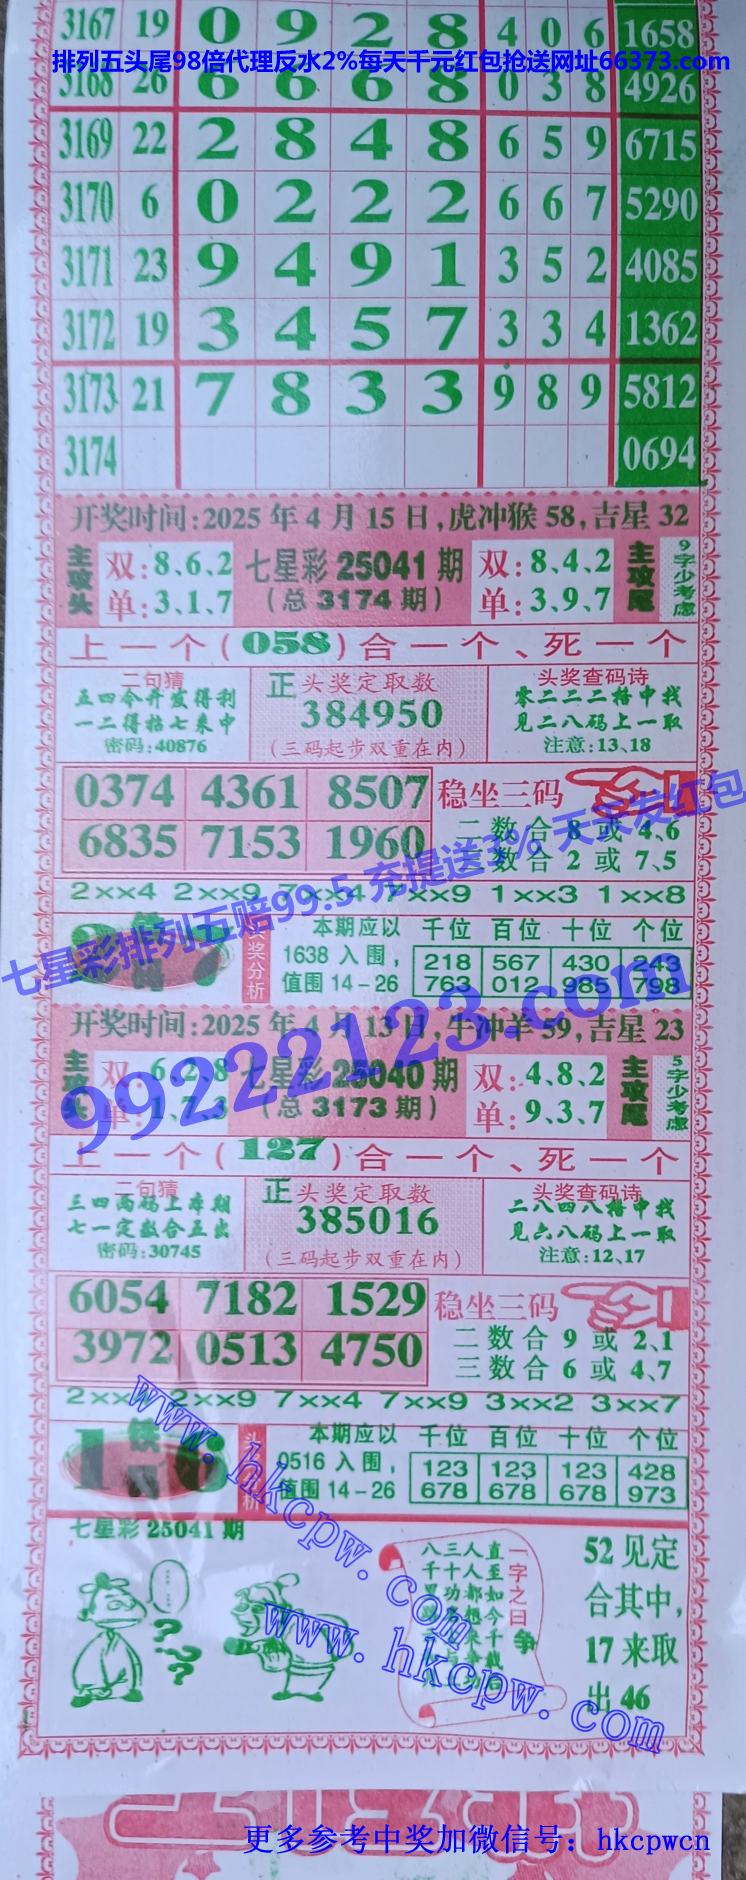 3167 19 0 9 2 8 4 0 6 1658
排列五头尾98倍代理反水2%每天千元红包抢送网址66373.com
3168 26 6 6 6 8 0 3 8 4926
3169 22 2 8 4 8 6 5 9 6715
3170 6 0 2 2 2 6 6 7 5290
3171 23 9 4 9 1 3 5 2 4085
3172 19 3 4 5 7 3 3 4 1362
3173 21 7 8 3 3 9 8 9 5812
3174 0694
开奖时间:2025年4月15日,虎冲猴58,吉星32
主攻头 双:8、6、2 七星彩25041期 双:8、4、2 主攻尾 9字少考虑
单:3、1、7 (总3174期) 单:3、9、7
上一个(058)合一个、死一个
二句猜 正 头奖定取数 头奖查码诗
五四今开发得利 384950 零二二二格中找
一二得枯七来中 见二八码上一取
密码:40876 (三码起步双重在内) 注意:13、18
0374 4361 8507 稳坐三码
6835 7153 1960 二数合8或4、6
三数合2或7、5
七星彩排列五赔99.5 充提送3% 天天发红包
2××4 2××9 7××4 7××9 1××3 1××8
头奖分析 本期应以 千位 百位 十位 个位
1638入围, 218 567 430 243
值围14-26 763 012 985 798
99222123.com
开奖时间:2025年4月13日,牛冲羊59,吉星23
主攻头 双:6、2、8 七星彩25040期 双:4、8、2 主攻尾 5字少考虑
单:1、7、3 (总3173期) 单:9、3、7
上一个(127)合一个、死一个
二句猜 正 头奖定取数 头奖查码诗
三四两码上本期 385016 二八四八格中找
七一定数合五出 见六八码上一取
密码:30745 (三码起步双重在内) 注意:12、17
6054 7182 1529 稳坐三码
3972 0513 4750 二数合9或2、1
三数合6或4、7
2×× 2××9 7××4 7××9 3××2 3××7
1 6 本期应以 千位 百位 十位 个位
0516入围, 123 123 123 428
值围14-26 678 678 678 973
www.hkcpw.com
www.hkcpw.com
七星彩25041期
一字之曰 争
直至如今千载
52见定
合其中,
17来取
出46
更多参考中奖加微信号：hkcpwcn